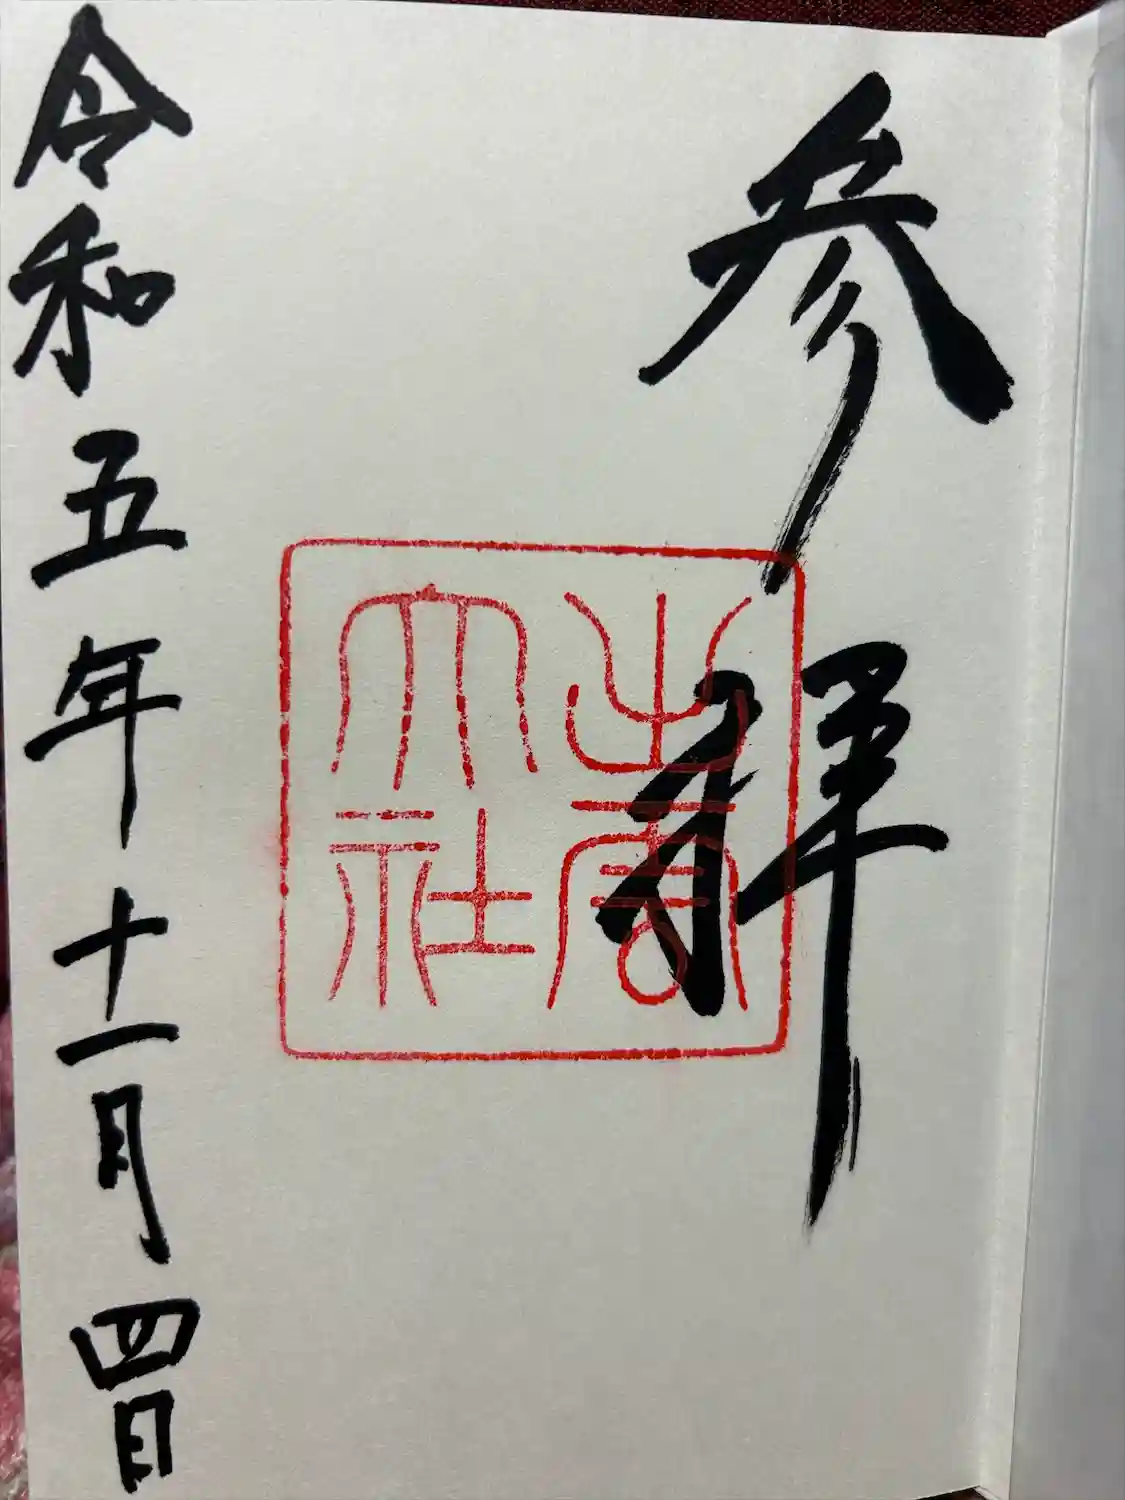 参拝
出雲大社
令和五年十一月四日